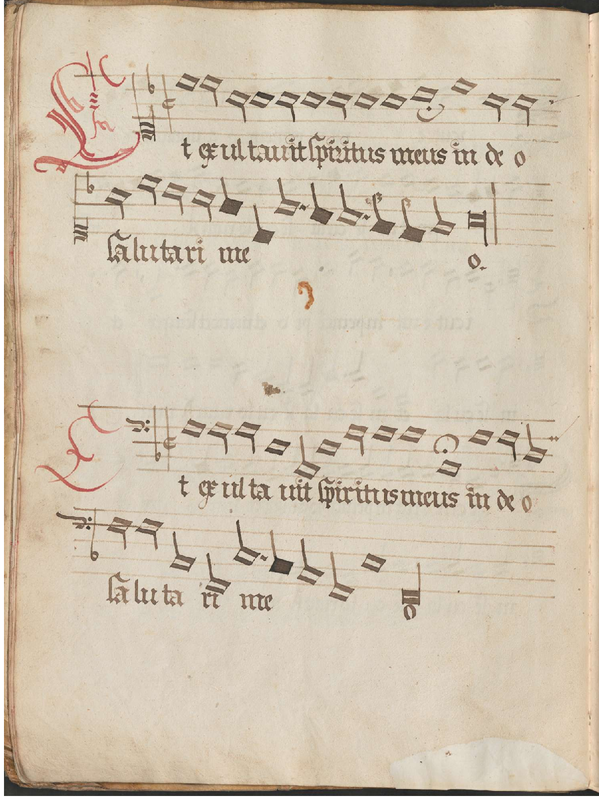 Et exultauit spiritus meus in deo
salutari meo.
Et exultauit spiritus meus in deo
salutari meo